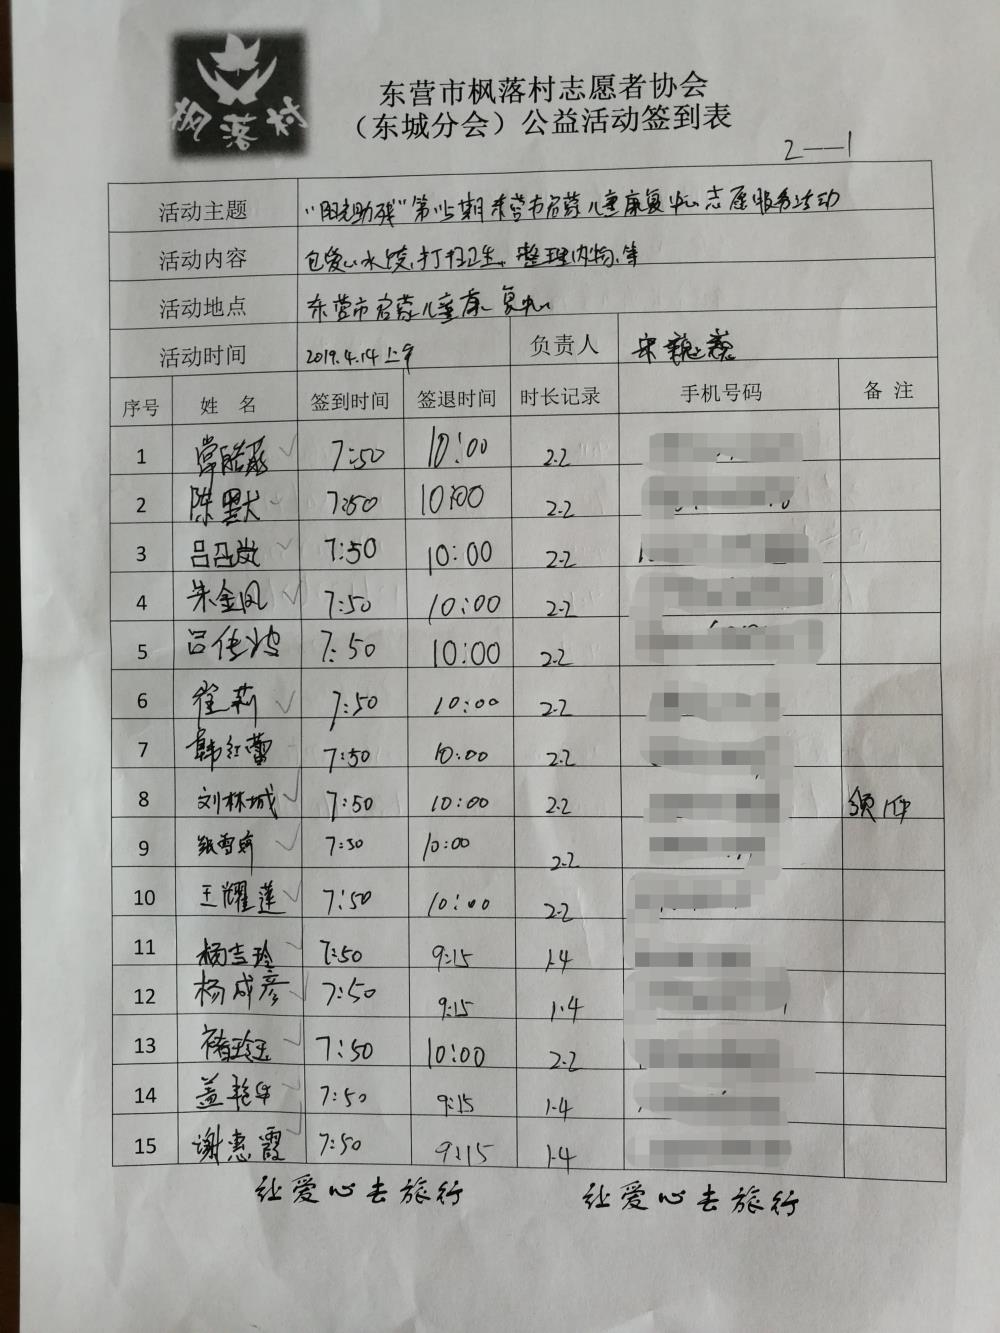 枫落村
东营市枫落村志愿者协会
（东城分会）公益活动签到表
2—1
活动主题 “阳光助残”第115期东营市启蒙儿童康复中心志愿服务活动
活动内容 包爱心水饺、打扫卫生、整理内物等
活动地点 东营市启蒙儿童康复中心
活动时间 2019.4.14上午 负责人 宋
序号 姓 名 签到时间 签退时间 时长记录 手机号码 备 注
1 7:50 10:00 2.2
2 陈默 7:50 10:00 2.2
3 吕 7:50 10:00 2.2
4 朱金凤 7:50 10:00 2.2
5 吕传波 7:50 10:00 2.2
6 崔莉 7:50 10:00 2.2
7 韩红蕾 7:50 10:00 2.2
8 刘林城 7:50 10:00 2.2
9 张雪娇 7:50 10:00 2.2
10 王耀莲 7:50 10:00 2.2
11 杨吉玲 7:50 9:15 1.4
12 杨成彦 7:50 9:15 1.4
13 褚玲玉 7:50 10:00 2.2
14 盖艳华 7:50 9:15 1.4
15 谢惠霞 7:50 9:15 1.4
让爱心去旅行 让爱心去旅行